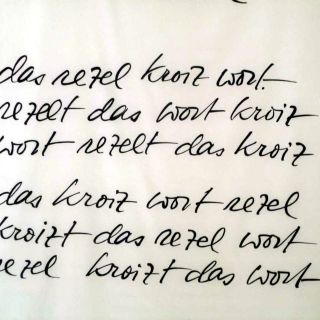 das rezel kroiz wort.
rezelt das wort kroiz
wort rezelt das kroiz
das kroiz wort rezel
kroizt das rezel wort
rezel kroizt das wort